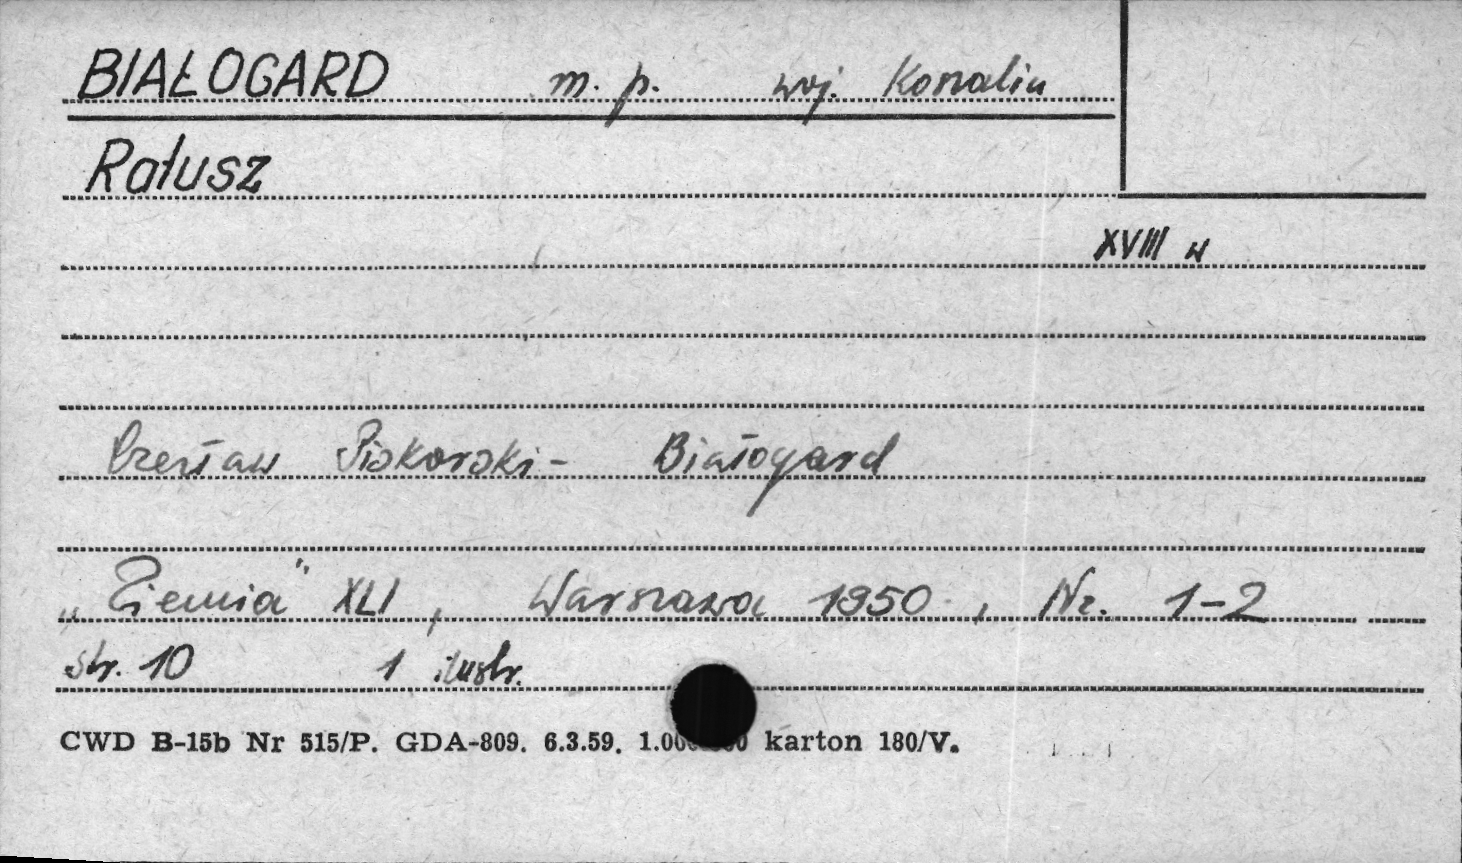 BIAŁOGARD m. p. woj. Koszalin
Ratusz
XVIII w
Czesław Piskorski - Białogard
„Ziemia" XLI, Warszawa 1950, Nr. 1-2
str. 10 1 ilustr.
CWD B-15b Nr 515/P. GDA-809. 6.3.59. karton 180/V.